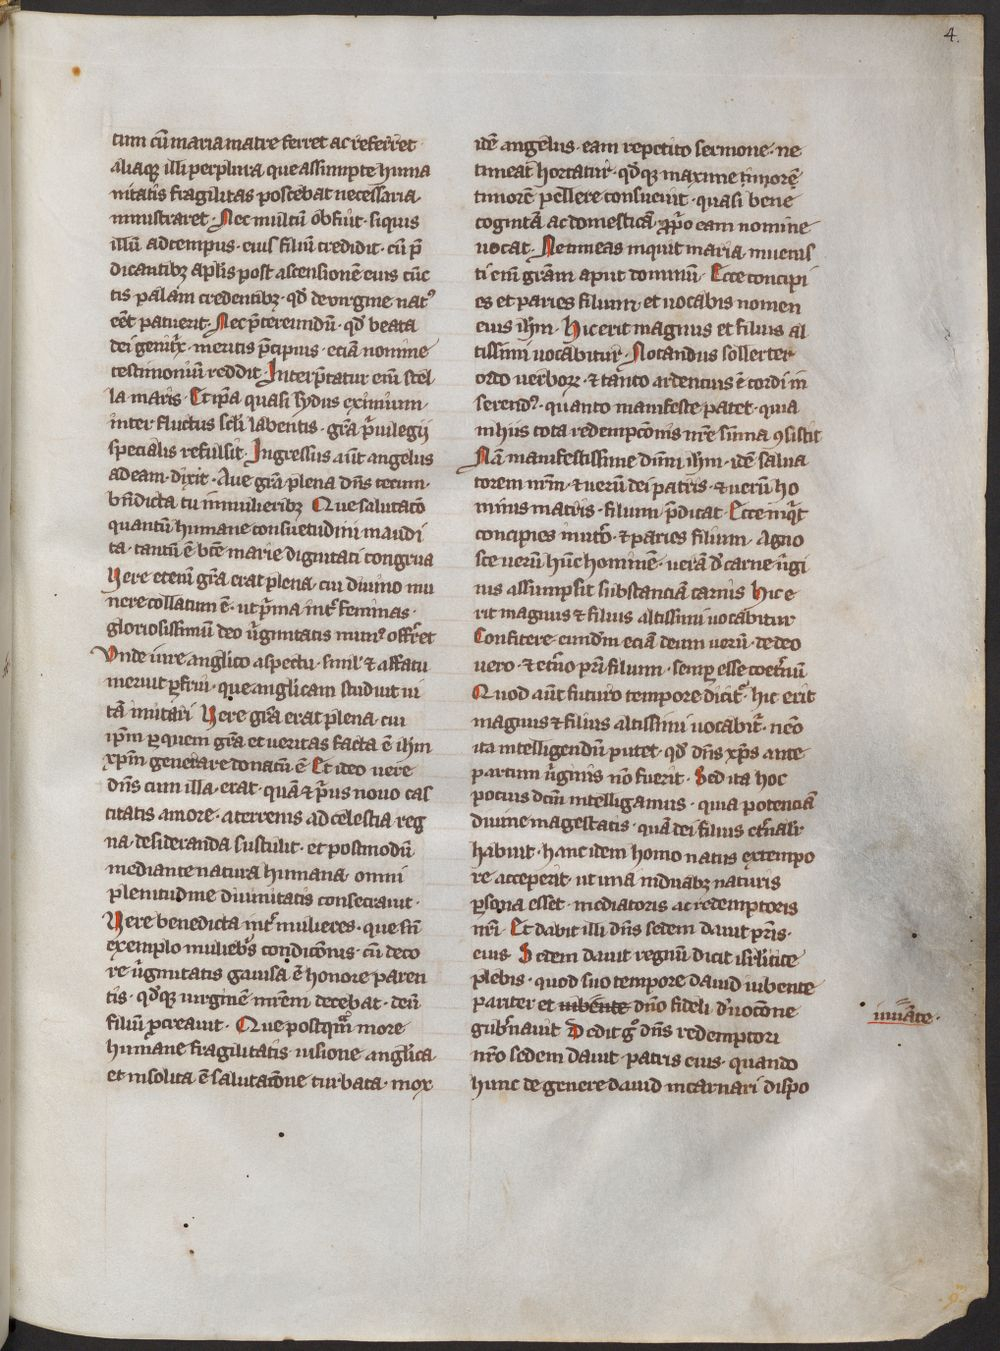 4.
tum cū maria matre ferret ac referret·
aliaqꝫ illi perplura que assumpte huma
nitatis fragilitas poscebat necessaria·
ministraret· Nec multū obfuit· siquis
illū ad tempus· eius filiū credidit· cū p̄
dicantibꝫ aplis post ascensionē eius cūc
tis palam credentibꝫ· qd̄ de virgine natꝰ
eēt patuerit· Nec p̄tereundū· qd̄ beata
dei genitx̄· meritis p̄cipuis· eciā nomine
testimoniū reddit· Interp̄tatur enī stel
la maris· Et ip̄a quasi sydus eximium·
inter fluctus scl̄i labentis· grā p̄uilegij
specialis refulsit· Ingressus aūt angelus
ad eam· dixit· Aue grā plena dn̄s tecum·
bn̄dicta tu in mulieribꝫ Que salutacō
quantū humane consuetudini inaudi
ta· tantū ē bt̄e marie dignitati congrua
Vere etenī grā erat plena· cui diuino mu
nere collatum ē· ut p̄ma int̄ feminas·
gloriosissimū deo ūginitatis munꝰ offr̄et
Vnde iure anglico aspectu· simlʼ & affatu
meruit ꝑfrui· que anglicam studuit ui
tā imitari Vere grā erat plena· cui
ip̄m ꝑ quem grā et ueritas facta ē ihm
xp̄m generare donatū ē Et ideo uere
dn̄s cum illa· erat· quā & p̄us nouo cas
titatis amore· a terrenis ad celestia reg
na· desideranda sustulit· et postmodū
mediante natura humana· omni
plenitudine diuinitatis consecrauit·
Vere benedicta int̄ mulieres· que sn̄
exemplo muliebs̄ condicōnis· cū deco
re ūginitatis gauisa ē honore paren
tis· qd̄qꝫ uirginē mr̄em decebat· deū
filiū ꝓcreauit· Que postqm̄ more
humane fragilitatis uisione anglica
et insolita ē salutacōne turbata· mox
idē angelus· eam repetito sermone· ne
timeat hortatur· qd̄qꝫ maxime timorē
timorē pellere consueuit· quasi bene
cognitā ac domesticā· ꝓp̄o eam nomine
uocat· Ne timeas inquit maria· inuenis
ti enī grām aput dominū· Ecce concipi
es et paries filium· et uocabis nomen
eius ihm· Hic erit magnus et filius al
tissimi uocabitur· Notandus sollerter
ordo uerboꝝ· & tanto ardencius ē cordi in
serendꝰ· quanto manifeste patet· quia
in hiis tota redempcōnis nr̄e sūma ꝯsistit
Nā manifestissime dūm ihm· idē salua
torem nr̄m· & uerū dei patris· & uerū ho
minis matris· filium p̄dicat· Ecce inqt̄
concipies in utō· & paries filium· Agno
sce uerū hūc hominē· uerā d̄ carne ūgi
nis assumpsit substanciā carnis Hic e
rit magnus & filius altissimi uocabitur
Confitere· eundm̄ eciā deum uerū· de deo
uero· & et̄no pr̄is filium· semꝑ esse coet̄nū
Quod aūt futuro tempore dicit̄· hic erit
magnus & filius altissimi uocabit̄· nēo
ita intelligendū putet· qd̄ dn̄s xp̄s ante
partum ūginis nō fuerit· Sed ita hoc
pocius dcm̄ intelligamus· quia potenciā
diuine magestatis· quā dei filius et̄nalr̄
habuit· hanc idem homo natus ex tempo
re acceperit· ut una in duabꝫ naturis
ꝑsona esset· mediatoris ac redemptoris
nr̄i· Et dabit illi dn̄s sedem dauit pr̄is·
eius· Sedem dauit regnū dicit isrlitice
plebis· quod suo tempore dauid iubente
pariter et iubente dn̄o fideli d̄uocōne
gub̄nauit Dedit gͦ dn̄s redemptori
nr̄o sedem dauit· patris eius· quando
hunc de genere dauid incarnari dispo
iuuāte·